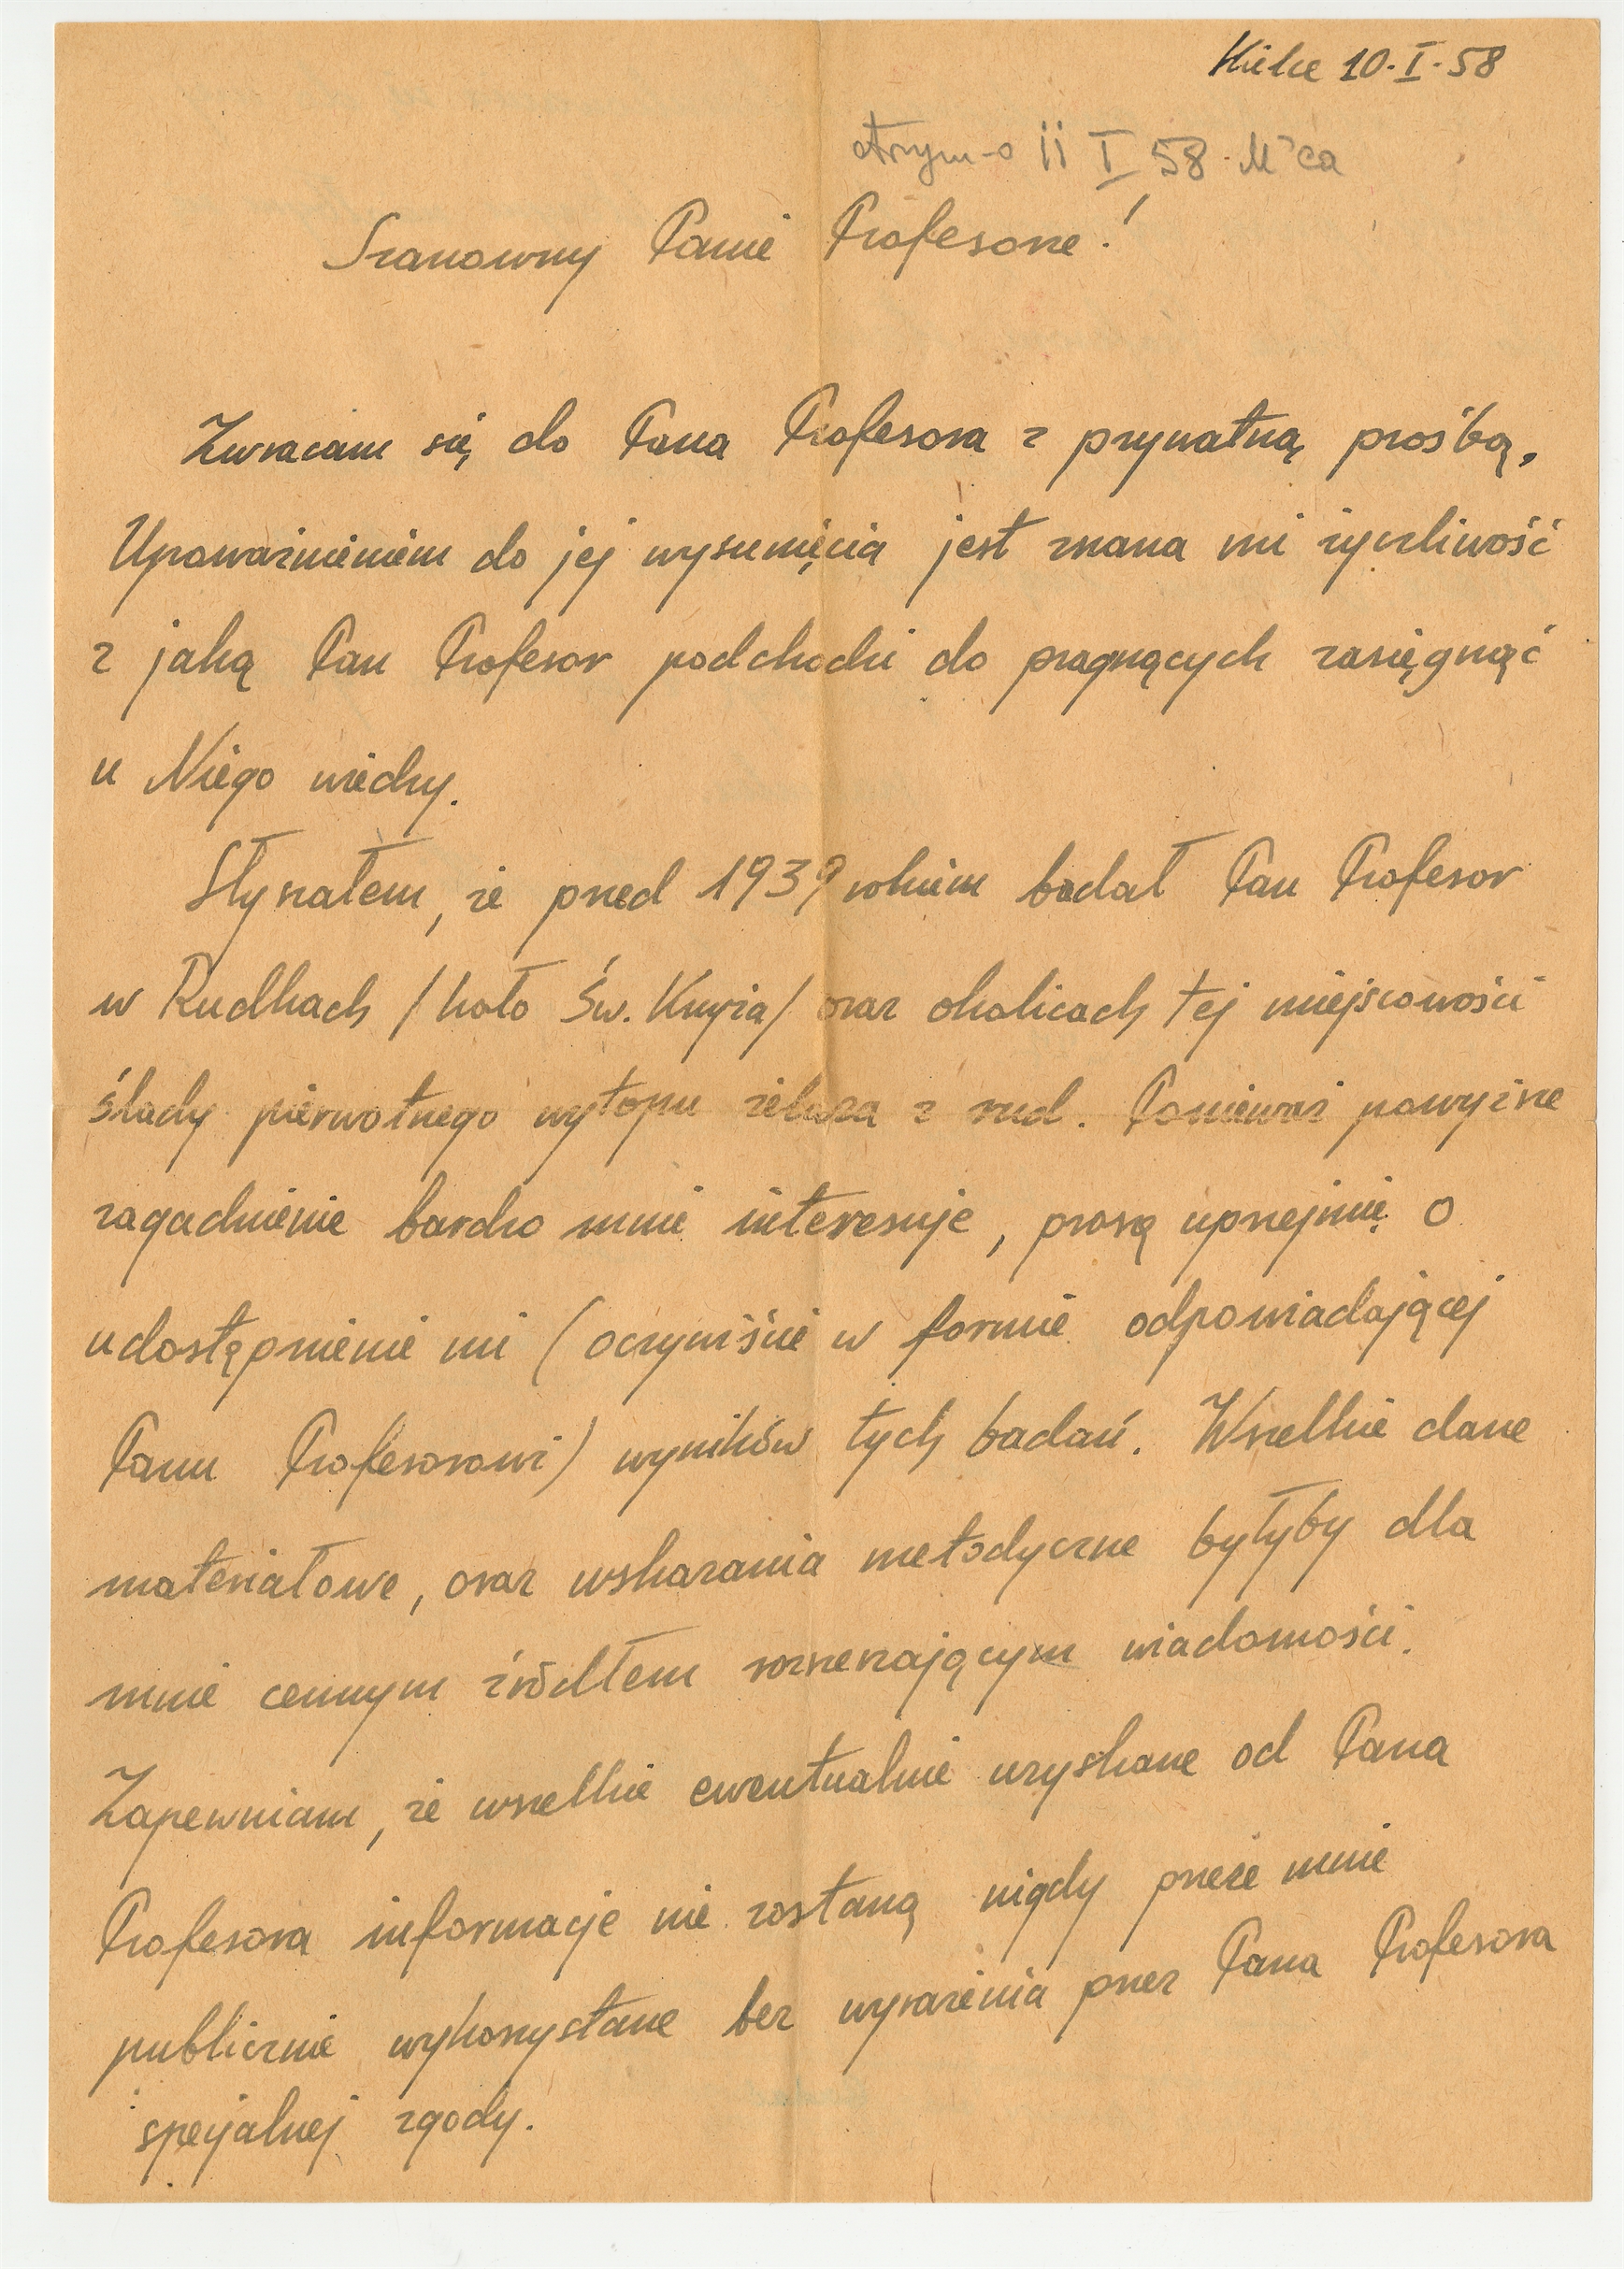 Kielce 10.I.58
otrzym-o 11 I 58. M-ca
Szanowny Panie Profesorze!
Zwracam się do Pana Profesora z prywatną prośbą.
Upoważnieniem do jej wysunięcia jest znana mi życzliwość
z jaką Pan Profesor podchodzi do pragnących zasięgnąć
u Niego wiedzy.
Słyszałem, że przed 1939 rokiem badał Pan Profesor
w Rudkach /koło Św. Krzyża/ oraz okolicach tej miejscowości
ślady pierwotnego wytopu żelaza z rud. Ponieważ powyższe
zagadnienie bardzo mnie interesuje, proszę uprzejmię o
udostępnienie mi (oczywiście w formie odpowiadającej
Panu Profesorowi) wyników tych badań. Wszelkie dane
materiałowe, oraz wskazania metodyczne byłyby dla
mnie cennym źródłem rozszerzającym wiadomości.
Zapewniam, że wszelkie ewentualnie uzyskane od Pana
Profesora informacje nie zostaną nigdy przeze mnie
publicznie wykorzystane bez wyrażenia przez Pana Profesora
specjalnej zgody.